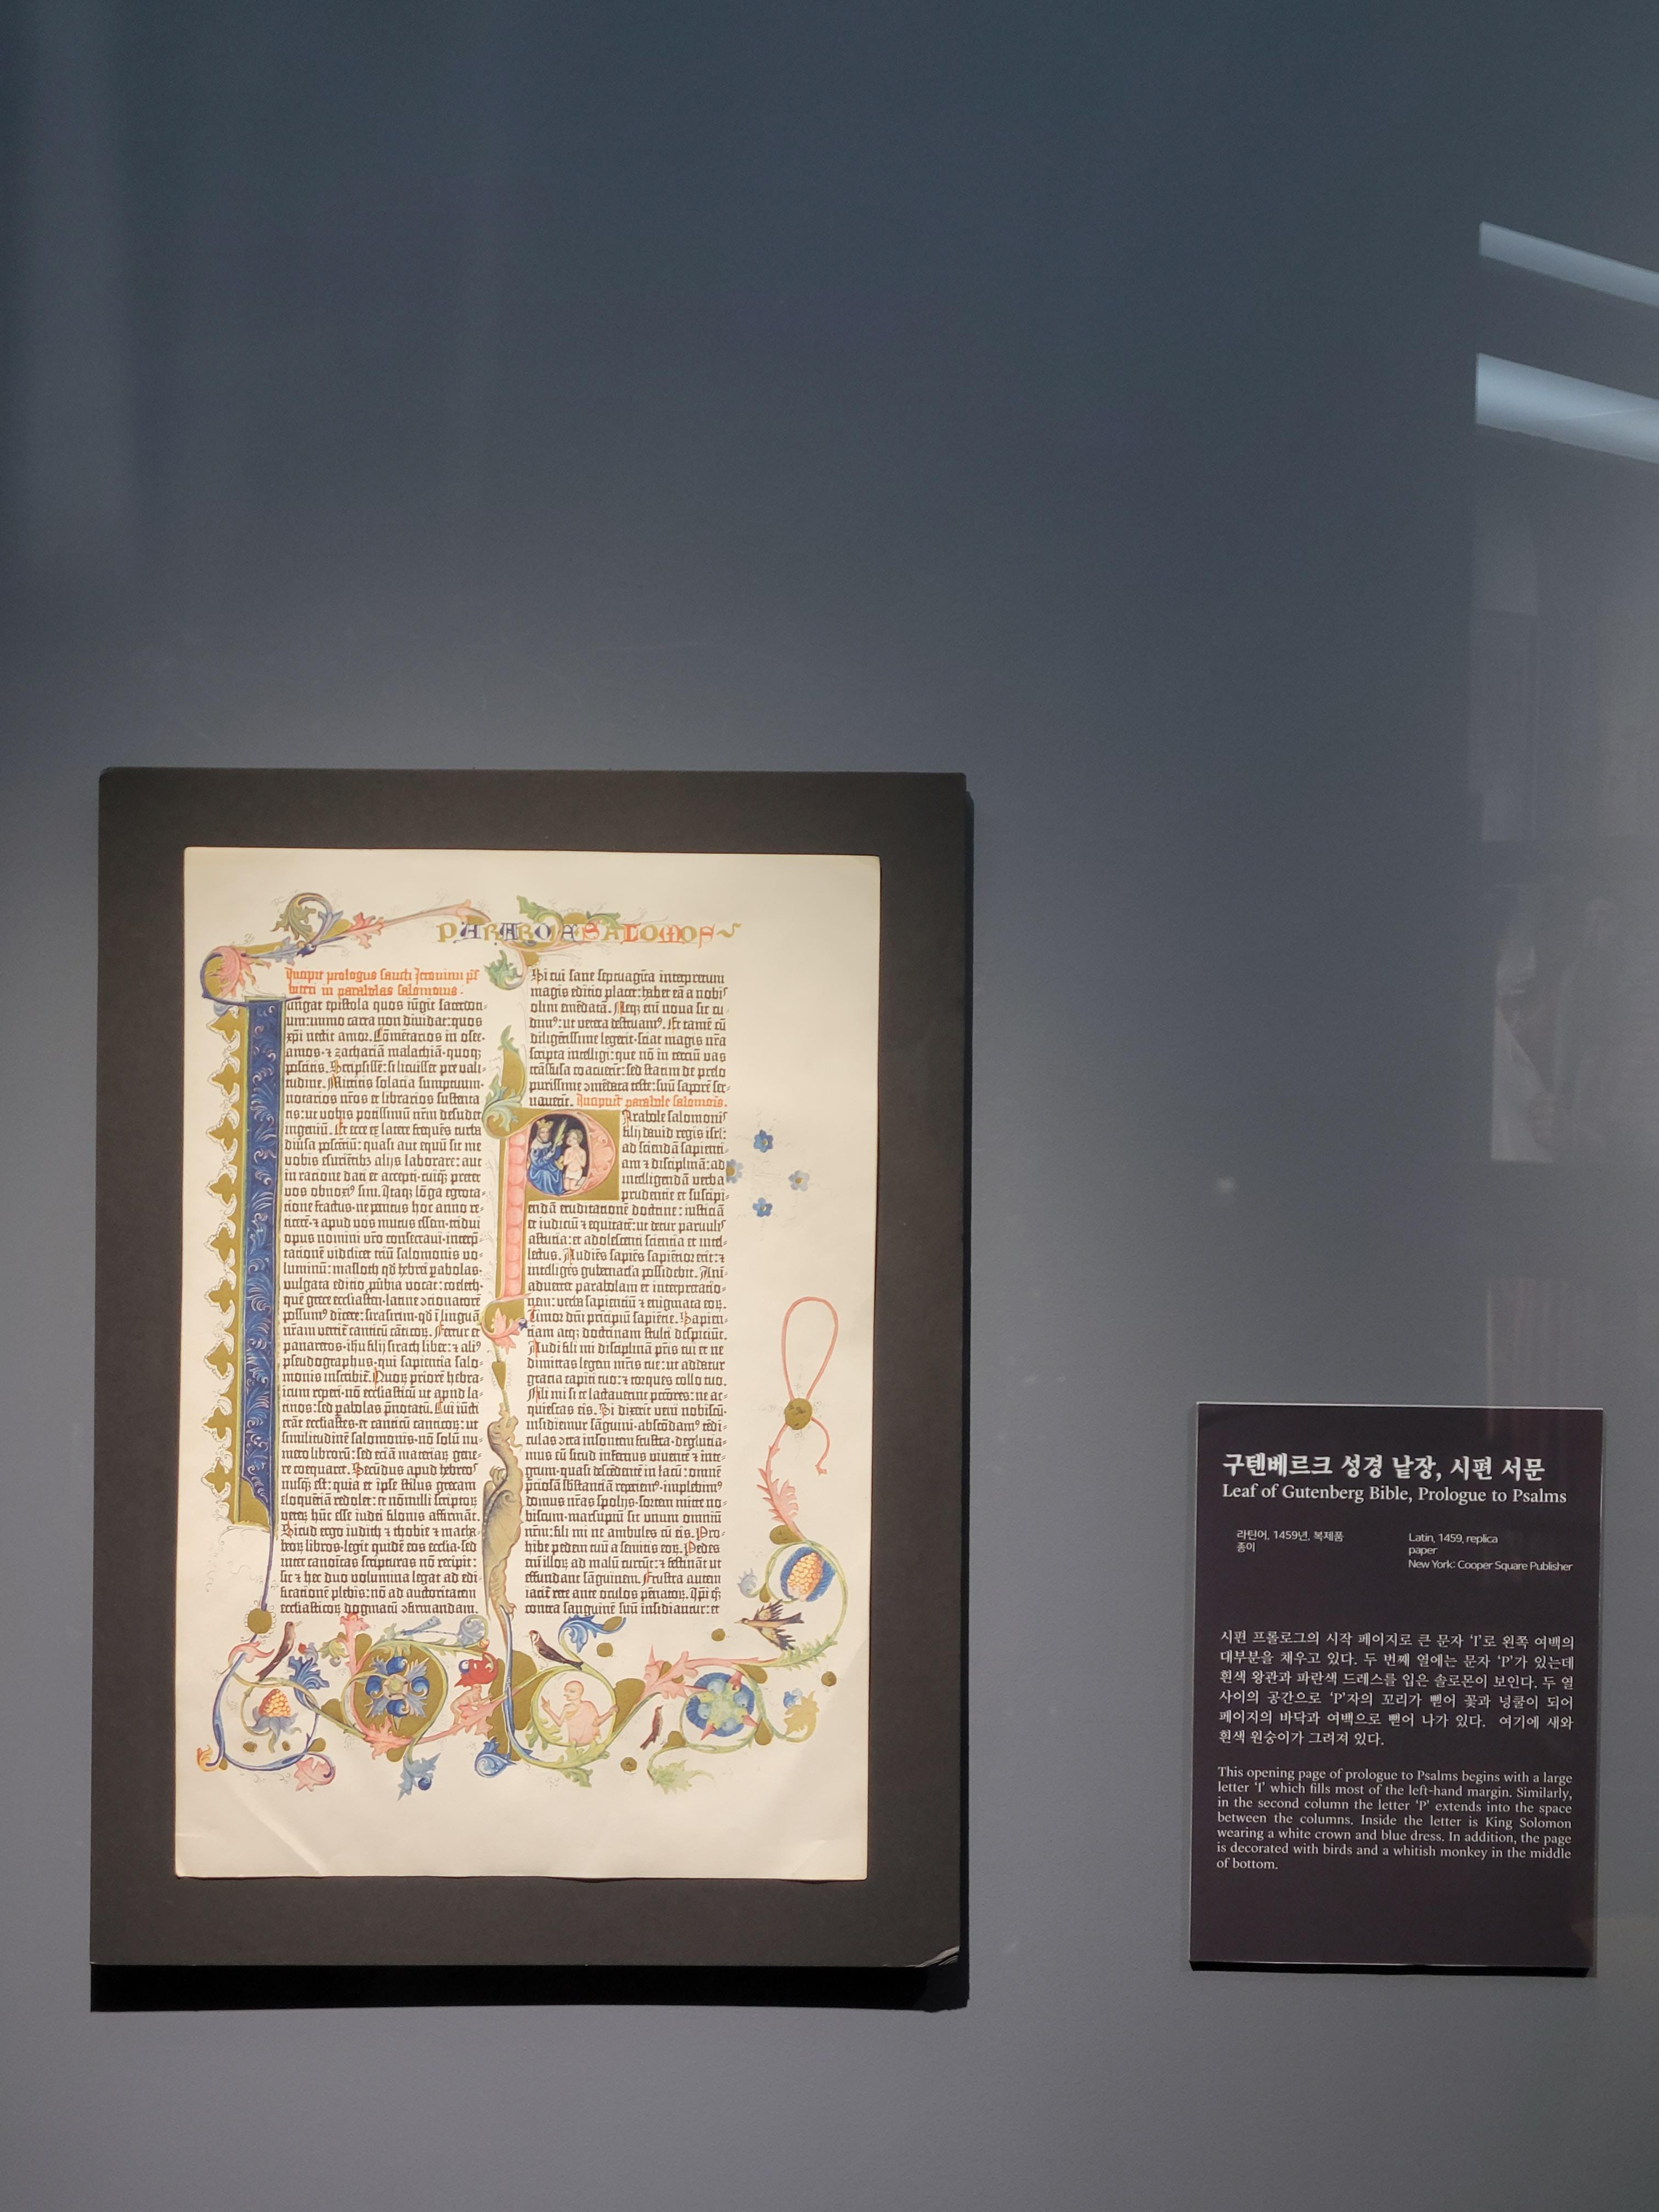 PARABOLE SALOMOS
Incipit prologus sancti Jeronimi p̄s
biteri in parabolas salomonis.
Iungat epistola quos iūgit sacerdoti-
um: immo carta non dividat: quos
xp̄i nectit amor. Cōmētarios in osee-
amos·⁊ zachariā malachiā·quoqꝫ
poscitis. Scripsissē: si licuisset pre vali-
tudine. Mittitis solacia sumptuum·
notarios nr̄os et librarios sustenta
is: ut vobis potissimū nr̄m desudet
ingeniū. Et ecce ex latere frequēs turba
diūsa poscētiū: quasi aut equū sit me
vobis esuriētibꝫ alijs laborare: aut
in racione dati et accepti·cuiqꝫ preter
vos obnoxiꝰ sim. Itaqꝫ lōga egrota-
cione fractus·ne penitus hoc anno re-
ticerē·⁊ apud vos mutus essem·tridui
opus nomini vr̄o consecravi·interp̄-
tacionē videlicet triū salomonis vo-
luminū: masloth qd̓ hebrei pabolas·
vulgata editio pūbia vocat: coeleth·
quē grece ecclesiasten·latine ɔcionatorē
possumꝰ dicere: sirasirim·qd̓ ī linguā
nr̄am vertit̄ canticū cāticoꝝ. Fertur et
panaretos·ihū filij sirach liber: ⁊ aliꝰ
pseudographus·qui sapientia salo-
monis inscribit̄. Quoꝝ priorē hebra-
icum repperi·nō ecclesiasticū ut apud la-
tinos: sed pabolas p̄notatū. Cui iūcti
erāt ecclesiastes·et canticū canticoꝝ: ut
similitudinē salomonis·nō solū nu-
mero libroꝝ: sed eciā materiaꝝ gene-
re coequaret. Secūdus apud hebreos
nusqꝫ est: quia et ipse stilus grecam
eloquētiā redolet: et nōnulli scriptoꝝ
veteꝝ hūc esse iudei filonis affirmāt.
Sicud ergo iudith ⁊ thobie ⁊ macha-
beoꝝ libros·legit quidē eos ecclesia·sed
inter canoīcas scripturas nō recipit:
sic ⁊ hec duo volumina legat ad edi-
ficacionē plebis: nō ad auctoritatem
ecclesiasticoꝝ dogmatū ɔfirmandam.
Si cui sane septuagīta interpretum
magis editio placet: habet eā a nobiˢ
olim emēdatā. Neqꝫ enī nova sic cu-
dimꝰ: ut vetera destruamꝰ. Et tamē cū
diligētissime legerit·sciat magis nr̄a
scripta intelligi: que nō in terciū vas
trāsfusa coacuerīt: sed statim de prelo
purissime ɔmēdata teste: suū saporē ser-
vaverīt. Incipiūt parabole salomōis.
Parabole salomoniˢ
filij david regis isrl̄:
ad sciendā sapienti-
am ⁊ disciplinā: ad
intelligendā verba
prudentie et suscipi-
endā eruditacionē doctrine: iusticiā
et iudiciū ⁊ equitatē: ut detur parvuliˢ
astutia: et adolescenti scientia et intel-
lectus. Audiēs sapiēs sapiētior erit: ⁊
intelligēs gubernacla possidebit. Ani-
advertet parabolam et interpretatio-
nem: verba sapientiū ⁊ enigmata eoꝝ.
Timor dn̄i principiū sapiētie. Sapien-
tiam atqꝫ doctrinam stulti despiciūt.
Audi fili mi disciplinā pr̄is tui et ne
dimittas legem mr̄is tue: ut addatur
gracia capiti tuo: ⁊ torques collo tuo.
Fili mi si te lactaverint pctōres: ne ac-
quiescas eis. Si dixerīt veni nobiscū·
insidiemur sāguini·abscōdamꝰ tēdi-
culas ɔtra insontem frustra·deglutia-
mus eū sicud infernus viventē ⁊ inte-
grum·quasi descēdentē in lacū: omnē
p̄ciosā sb̄stantiā reperiemꝰ·implebimꝰ
domus nr̄as spolijs·sortem mitte no-
biscum·marsupiū sit unum omniū
nr̄m: fili mi ne ambules cū eis. Pro-
hibe pedem tuū a semitis eoꝝ. Pedes
enī illoꝝ ad malū currūt: ⁊ festināt ut
effundant sāguinem. Frustra autem
iacit̄ rete ante oculos pēnatoꝝ. Ip̄i q̄ꝫ
contra sanguinē suū insidiantur: et
구텐베르크 성경 낱장, 시편 서문
Leaf of Gutenberg Bible, Prologue to Psalms
라틴어, 1459년, 복제품
종이
Latin, 1459, replica
paper
New York: Cooper Square Publisher
시편 프롤로그의 시작 페이지로 큰 문자 ‘I’로 왼쪽 여백의
대부분을 채우고 있다. 두 번째 열에는 문자 ‘P’가 있는데
흰색 왕관과 파란색 드레스를 입은 솔로몬이 보인다. 두 열
사이의 공간으로 ‘P’자의 꼬리가 뻗어 꽃과 넝쿨이 되어
페이지의 바닥과 여백으로 뻗어 나가 있다. 여기에 새와
흰색 원숭이가 그려져 있다.
This opening page of prologue to Psalms begins with a large
letter ‘I’ which fills most of the left-hand margin. Similarly,
in the second column the letter ‘P’ extends into the space
between the columns. Inside the letter is King Solomon
wearing a white crown and blue dress. In addition, the page
is decorated with birds and a whitish monkey in the middle
of bottom.